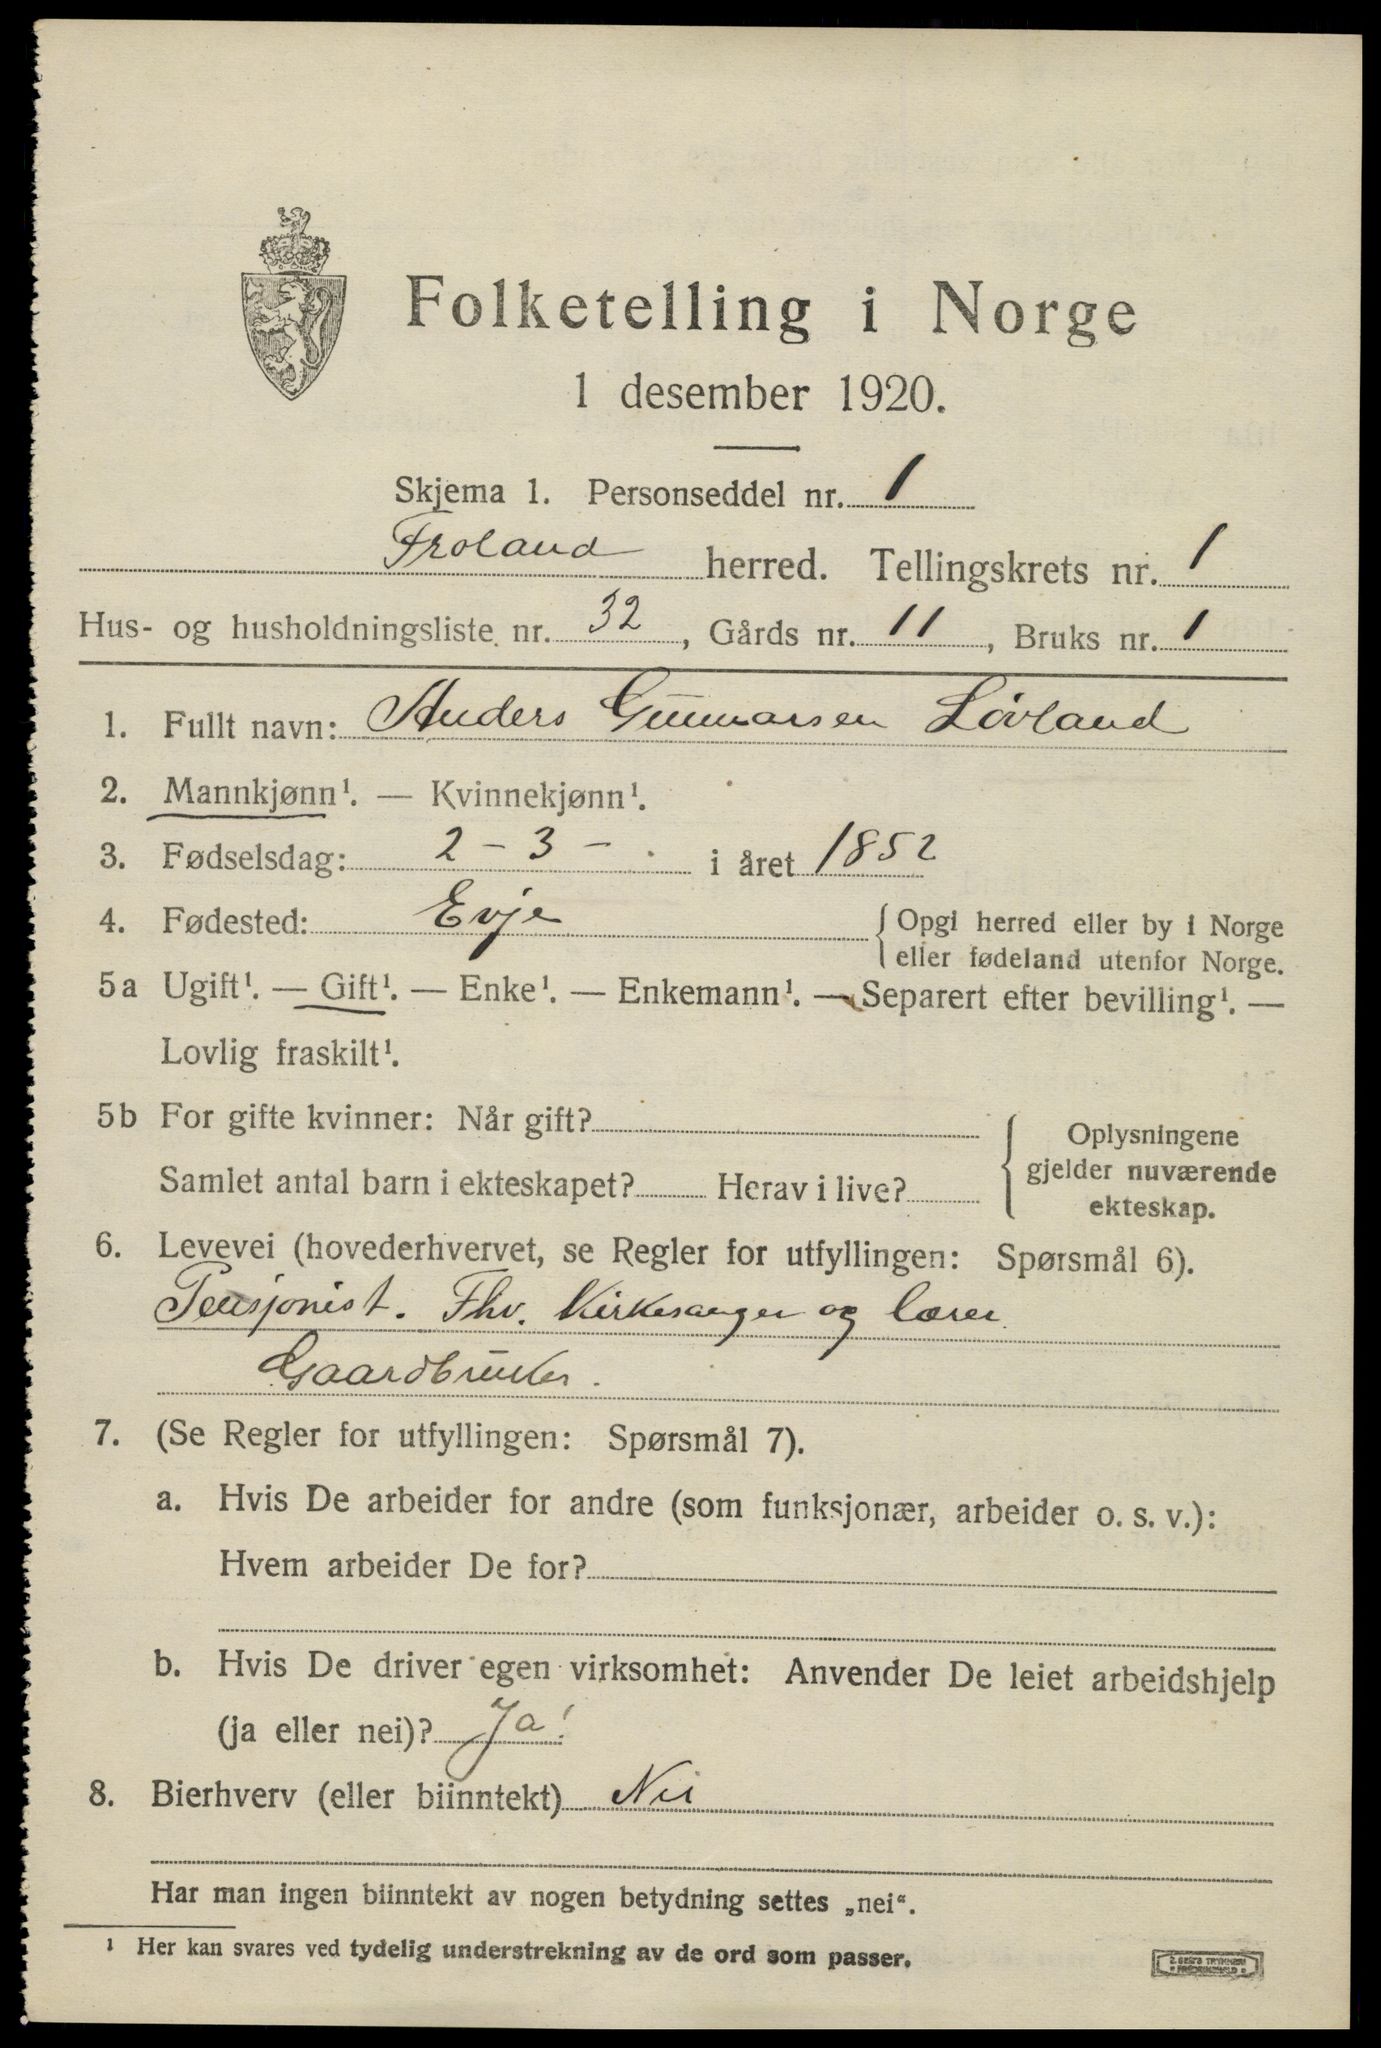 Folketelling i Norge
1 desember 1920.
Skjema 1. Personseddel nr. 1
Froland herred. Tellingskrets nr. 1
Hus- og husholdningsliste nr. 32, Gårds nr. 11, Bruks nr. 1
1. Fullt navn: Anders Gunnarsen Lövland
2. Mannkjønn¹. — Kvinnekjønn¹.
3. Fødselsdag: 2 - 3 - . i året 1852
4. Fødested: Evje { Opgi herred eller by i Norge
eller fødeland utenfor Norge.
5a Ugift¹. — Gift¹. — Enke¹. — Enkemann¹. — Separert efter bevilling¹. —
Lovlig fraskilt¹.
5b For gifte kvinner: Når gift?
Samlet antal barn i ekteskapet? Herav i live?
{ Oplysningene
gjelder nuværende
ekteskap.
6. Levevei (hovederhvervet, se Regler for utfyllingen: Spørsmål 6).
Pensjonist. Fhv. Kirkesanger og lærer
Gaardbruker.
7. (Se Regler for utfyllingen: Spørsmål 7).
a. Hvis De arbeider for andre (som funksjonær, arbeider o. s. v.):
Hvem arbeider De for?
b. Hvis De driver egen virksomhet: Anvender De leiet arbeidshjelp
(ja eller nei)? Ja!
8. Bierhverv (eller biinntekt) Nei
Har man ingen biinntekt av nogen betydning settes „nei“.
¹ Her kan svares ved tydelig understrekning av de ord som passer.